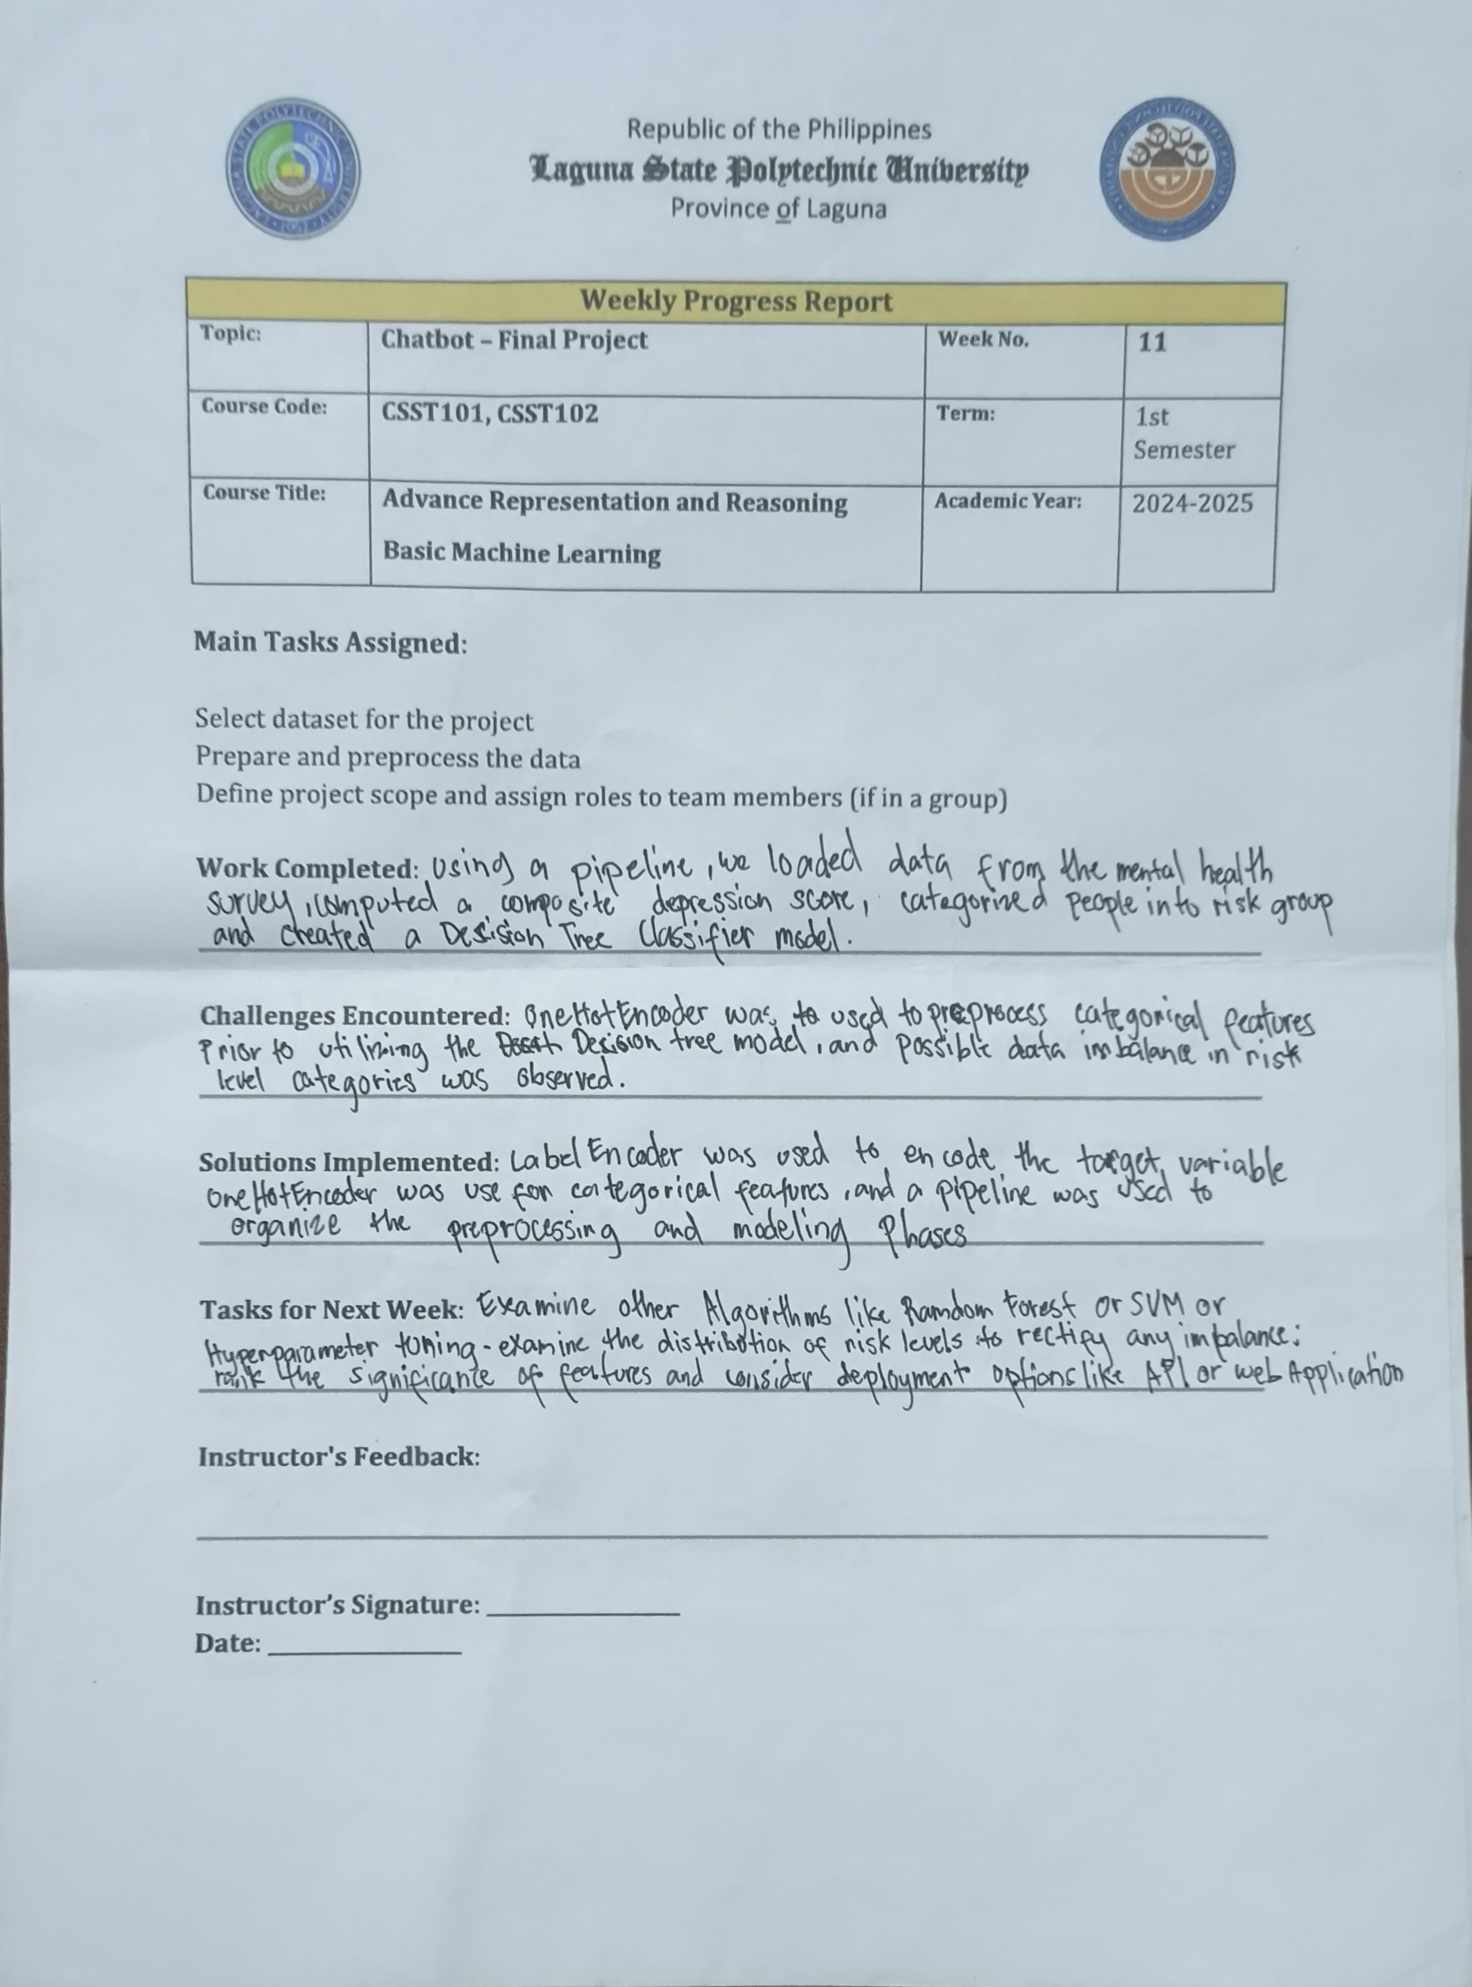 Republic of the Philippines
Laguna State Polytechnic University
Province of Laguna
Weekly Progress Report
Topic: Chatbot – Final Project Week No. 11
Course Code: CSST101, CSST102 Term: 1st
Semester
Course Title: Advance Representation and Reasoning Academic Year: 2024-2025
Basic Machine Learning
Main Tasks Assigned:
Select dataset for the project
Prepare and preprocess the data
Define project scope and assign roles to team members (if in a group)
Work Completed: Using a pipeline, we loaded data from the mental health
survey, computed a composite depression score, categorized people into risk group
and created a Desision Tree Classifier model.
Challenges Encountered: OneHotEncoder was to used to preprocess categorical features
Prior to utilizing the Decision tree model, and possible data imbalance in risk
level categories was observed.
Solutions Implemented: LabelEncoder was used to encode the target variable
OneHotEncoder was use for categorical features, and a pipeline was used to
organize the preprocessing and modeling Phases
Tasks for Next Week: Examine other Algorithms like Ramdom Forest or SVM or
Hyperparameter tuning - examine the distribution of risk levels to rectify any imbalance;
rank the significance of features and consider deployment options like API or web Application
Instructor's Feedback:
Instructor’s Signature:
Date: